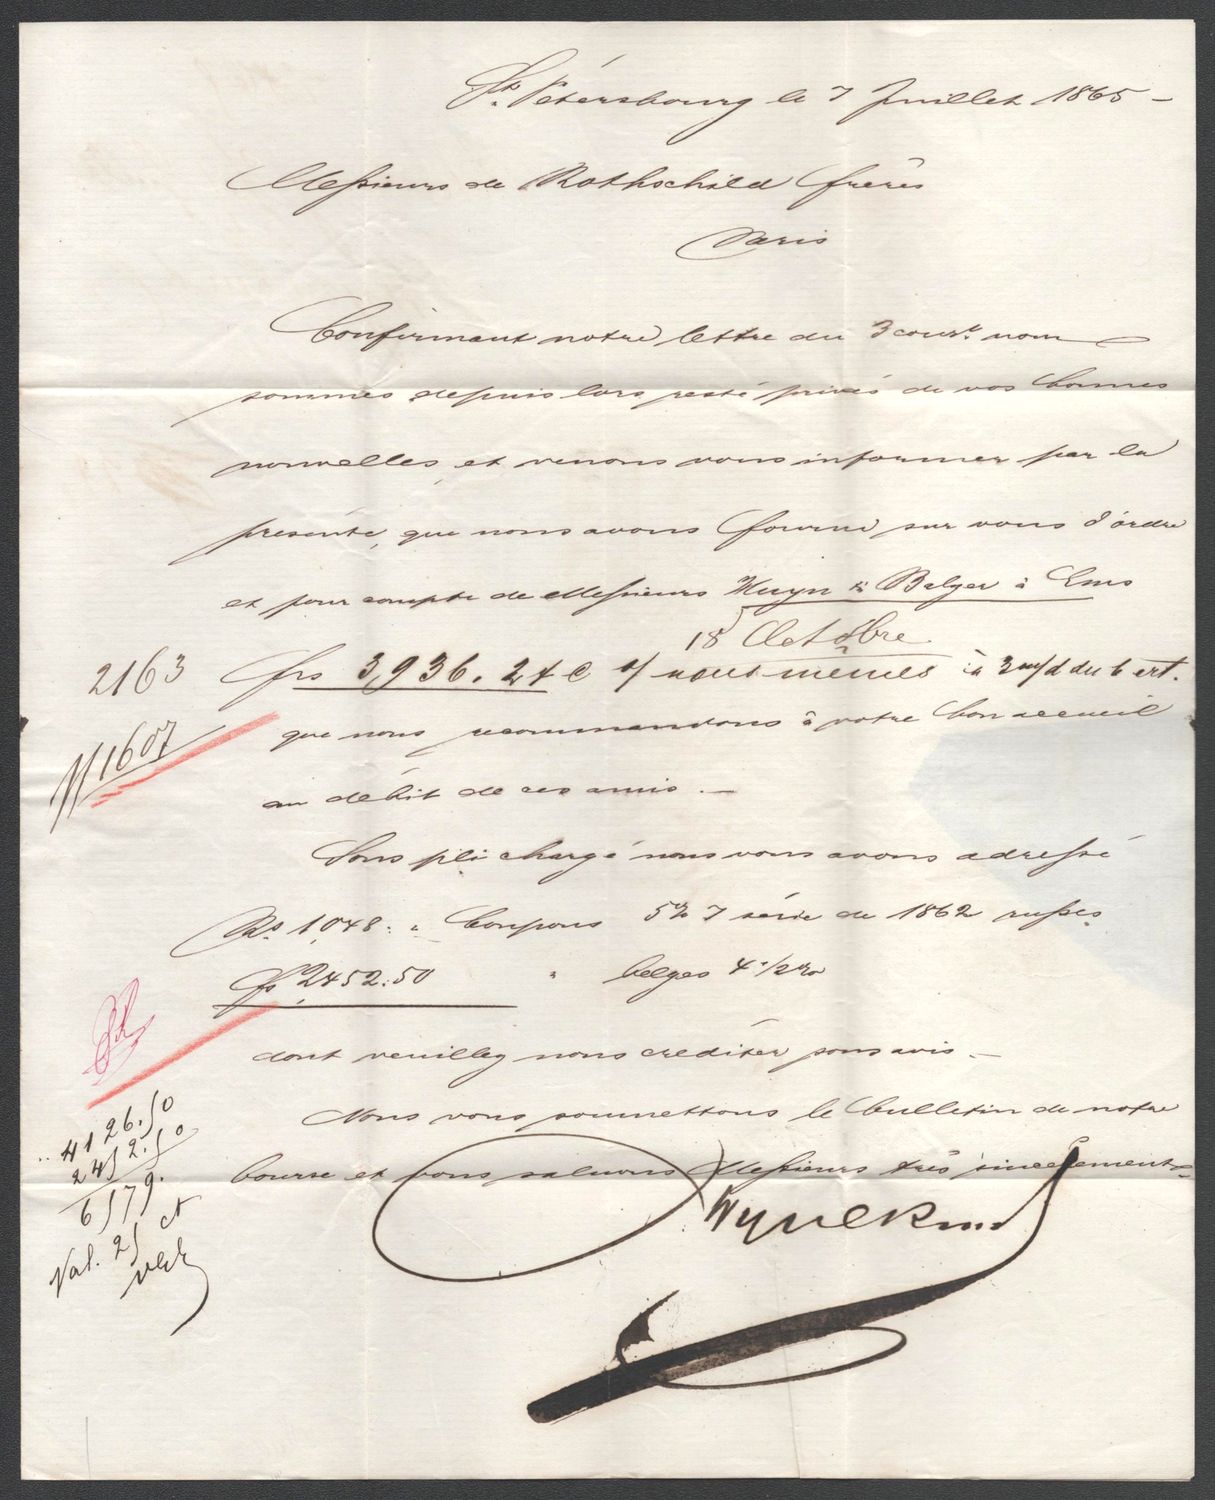 St. Pétersbourg le 7 Juillet 1865 –
Messieurs de Rothschild frères
Paris
Confirmant notre lettre du 3 court. nous
sommes depuis lors resté privés de vos bonnes
nouvelles, et venons vous informer par la
présente, que nous avons fourni sur vous d'ordre
et pour compte de Messieurs & Balzer à Ems
18 Octobre
2163 frs 3,936. 24 c o/ nous mêmes à 3 m/d du 6 crt.
que nous recommandons à votre bon accueil
1607
au débit de ces amis. –
Sous pli chargé nous vous avons adressé
Rs 1,048 : " Coupons 5% 7 série de 1862 russes
fs 2,452:50 " belges 4 1/2 %
dont veuillez nous créditer sans avis. –
Nous vous soumettons le bulletin de notre
bourse et vous saluons Messieurs très sincèrement
4126.50
2452.50
6579.
Val. 25 ct